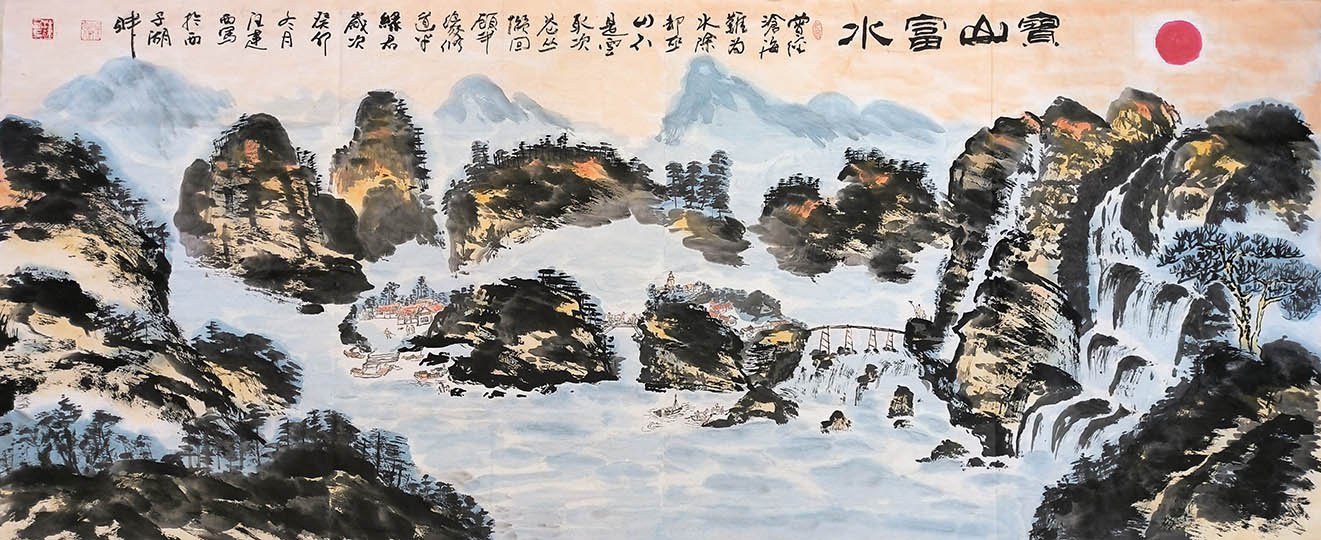 寶山富水
曾经
滄海
難为
水除
却巫
山不
是雲
取次
花丛
懒回
顧半
緣修
道半
緣君
歲次
癸卯
六月
汪建
西寫
於西
子湖
畔